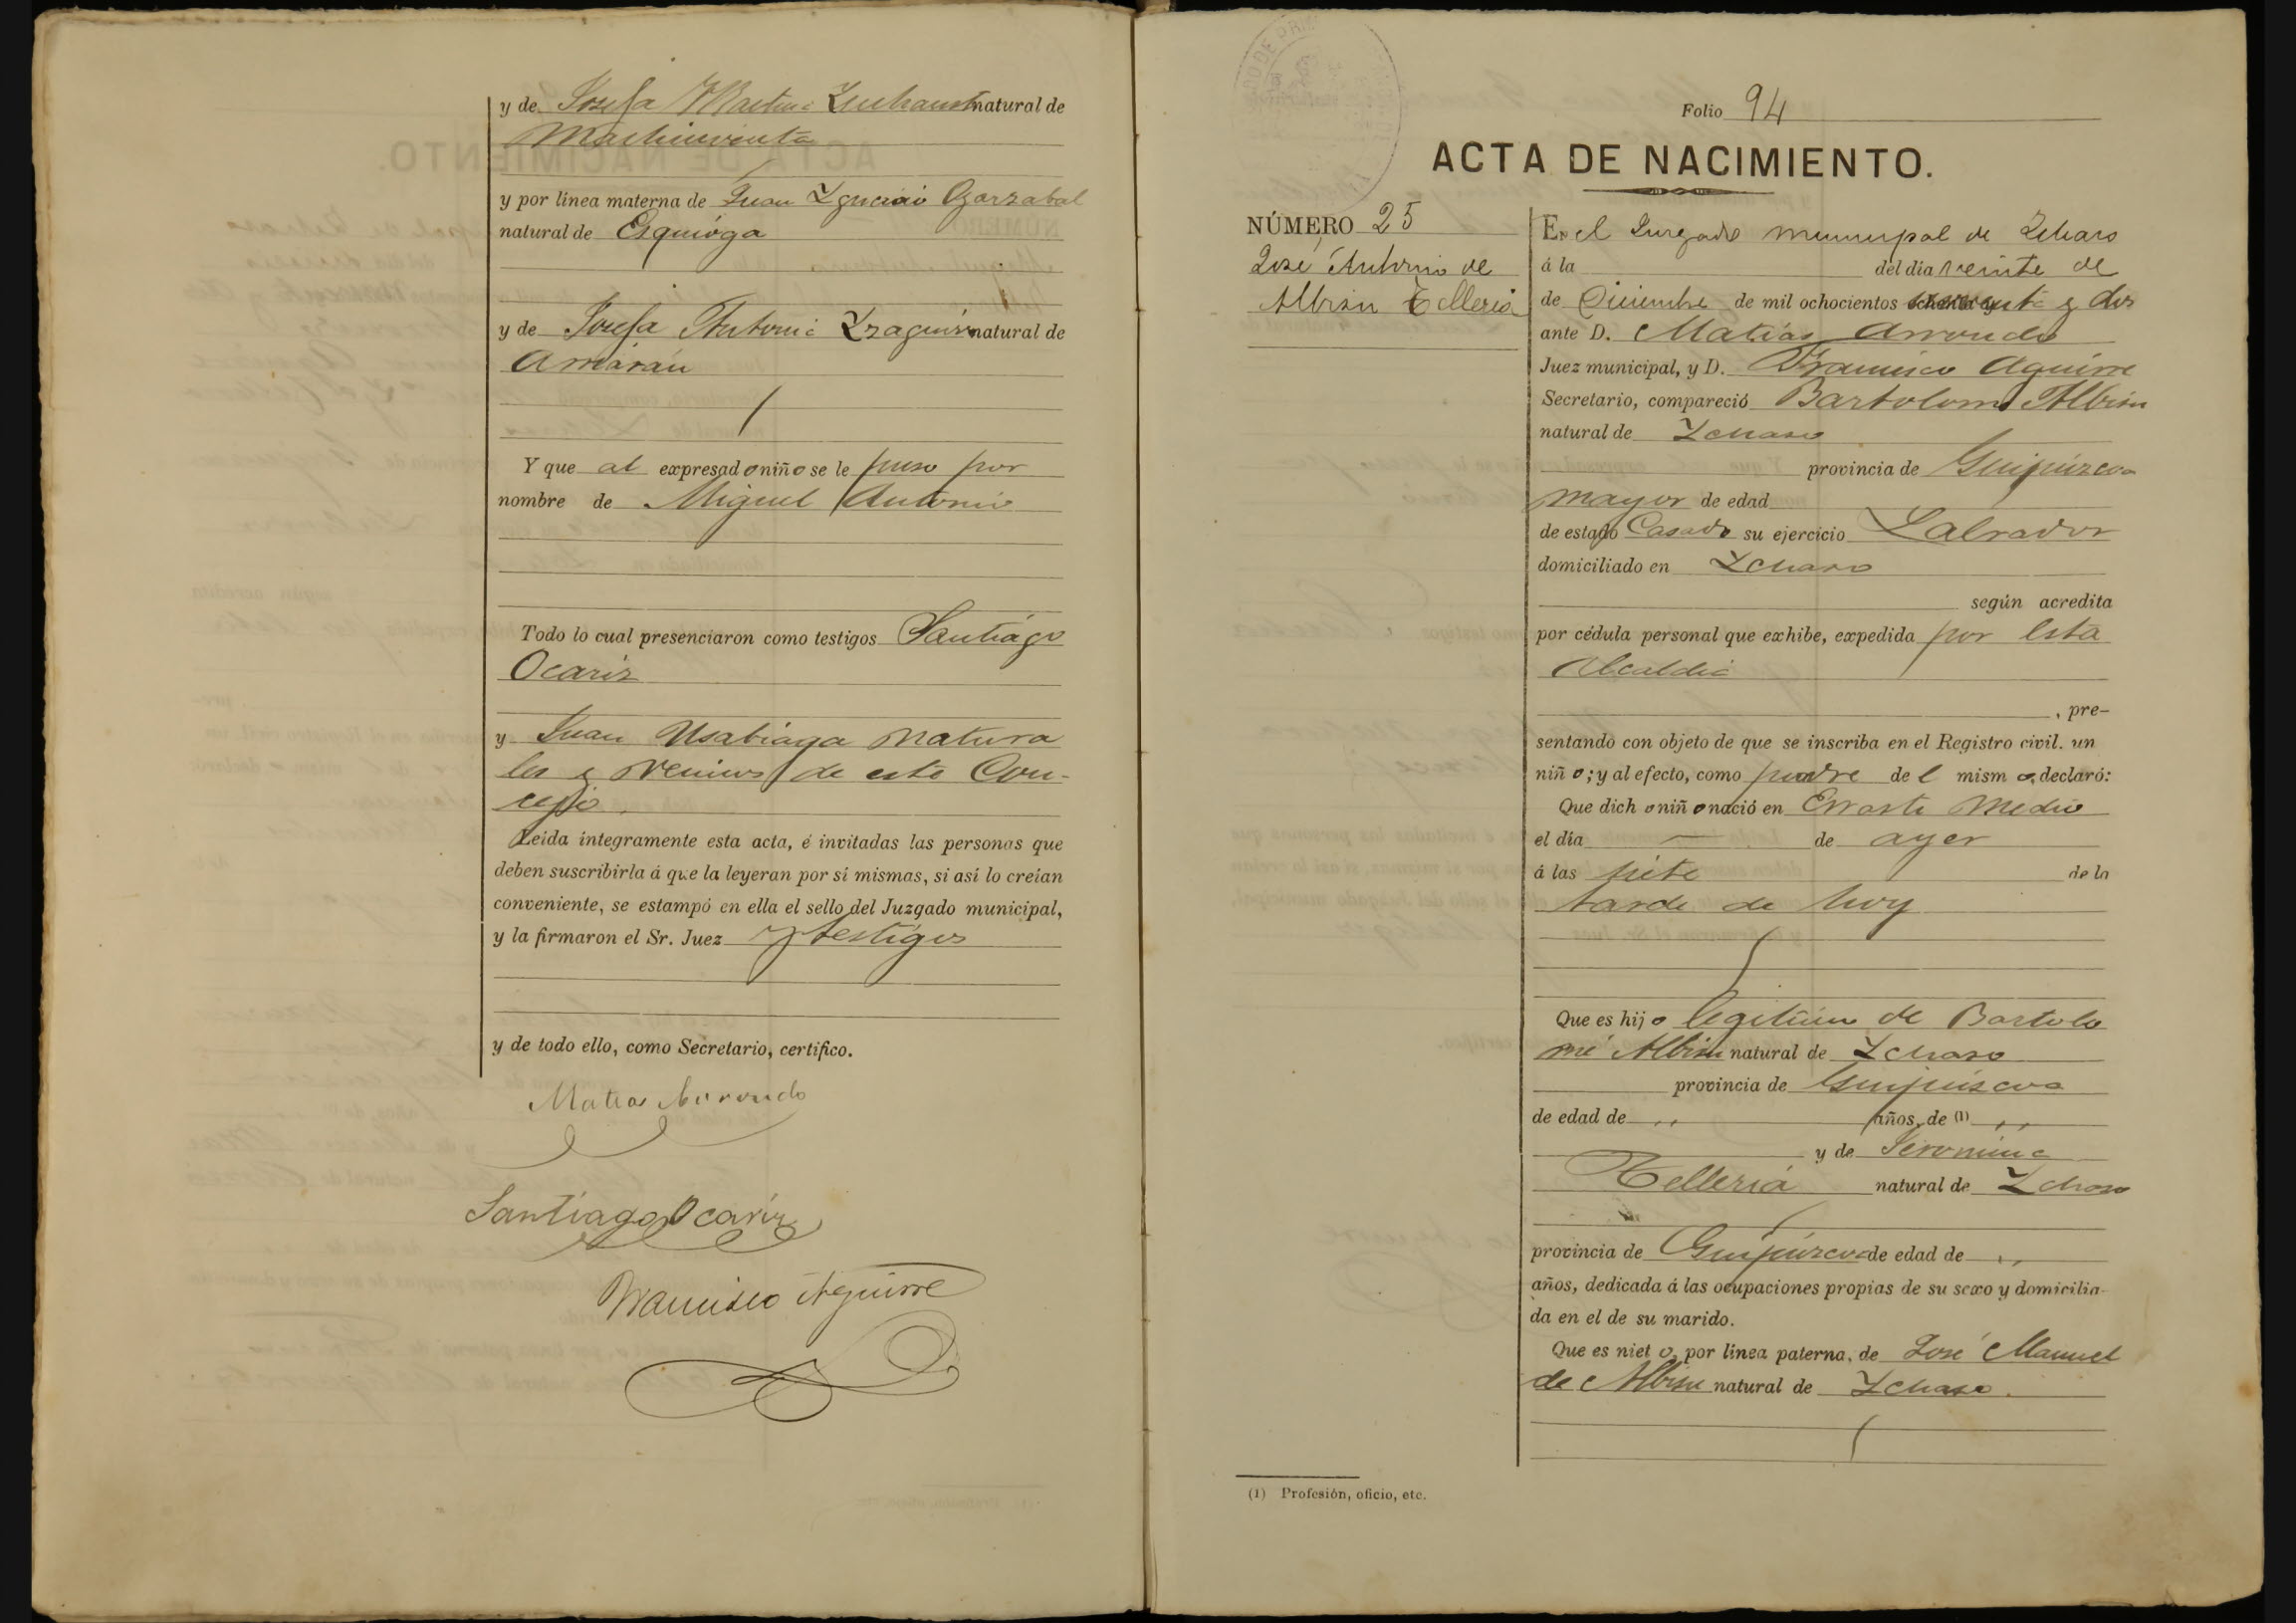 y de Josefa Martina natural de
Machinventa
y por línea materna de Juan Ygnacio Ogarzabal
natural de Esquioga
y de Josefa Antonia natural de
Amarán
Y que al expresado niño se le puso por
nombre de Miguel Antonio
Todo lo cual presenciaron como testigos Santiágo
Ocariz
y Juan Usabiaga natura
les y vecinos de este Con-
cejo.
Leída íntegramente esta acta, é invitadas las personas que
deben suscribirla á que la leyeran por sí mismas, si así lo creían
conveniente, se estampó en ella el sello del Juzgado municipal,
y la firmaron el Sr. Juez y testigos
y de todo ello, como Secretario, certifico.
Matias Arrondo
Santiago Ocariz
Francisco Aguirre
Folio 94
ACTA DE NACIMIENTO.
NÚMERO 25
José Antonio de
Albisu Telleria
En el Juzgado municipal de Ichaso
á la del día veinte de
de Diciembre de mil ochocientos ochenta y noventa y dos
ante D. Matías Arrondo
Juez municipal, y D. Francisco Aguirre
Secretario, compareció Bartolomé Albisu
natural de Ychaso
provincia de Guipúzcoa
mayor de edad
de estado Casado su ejercicio Labrador
domiciliado en Ychaso
según acredita
por cédula personal que exhibe, expedida por esta
Alcaldia
, pre-
sentando con objeto de que se inscriba en el Registro civil. un
niño; y al efecto, como padre del mismo, declaró:
Que dicho niño nació en Errasti Medio
el día — de ayer
á las siete de la
tarde de hoy
Que es hijo legitimo de Bartolo
mé Albisu natural de Ychaso
provincia de Guipúzcoa
de edad de ,, años, de (1) ,,
y de Jeronima
Telleria natural de Ychaso
provincia de Guipúzcoa de edad de ,,
años, dedicada á las ocupaciones propias de su sexo y domicilia-
da en el de su marido.
Que es nieto, por línea paterna, de José Manuel
de Albisu natural de Ychaso.
(1) Profesión, oficio, etc.